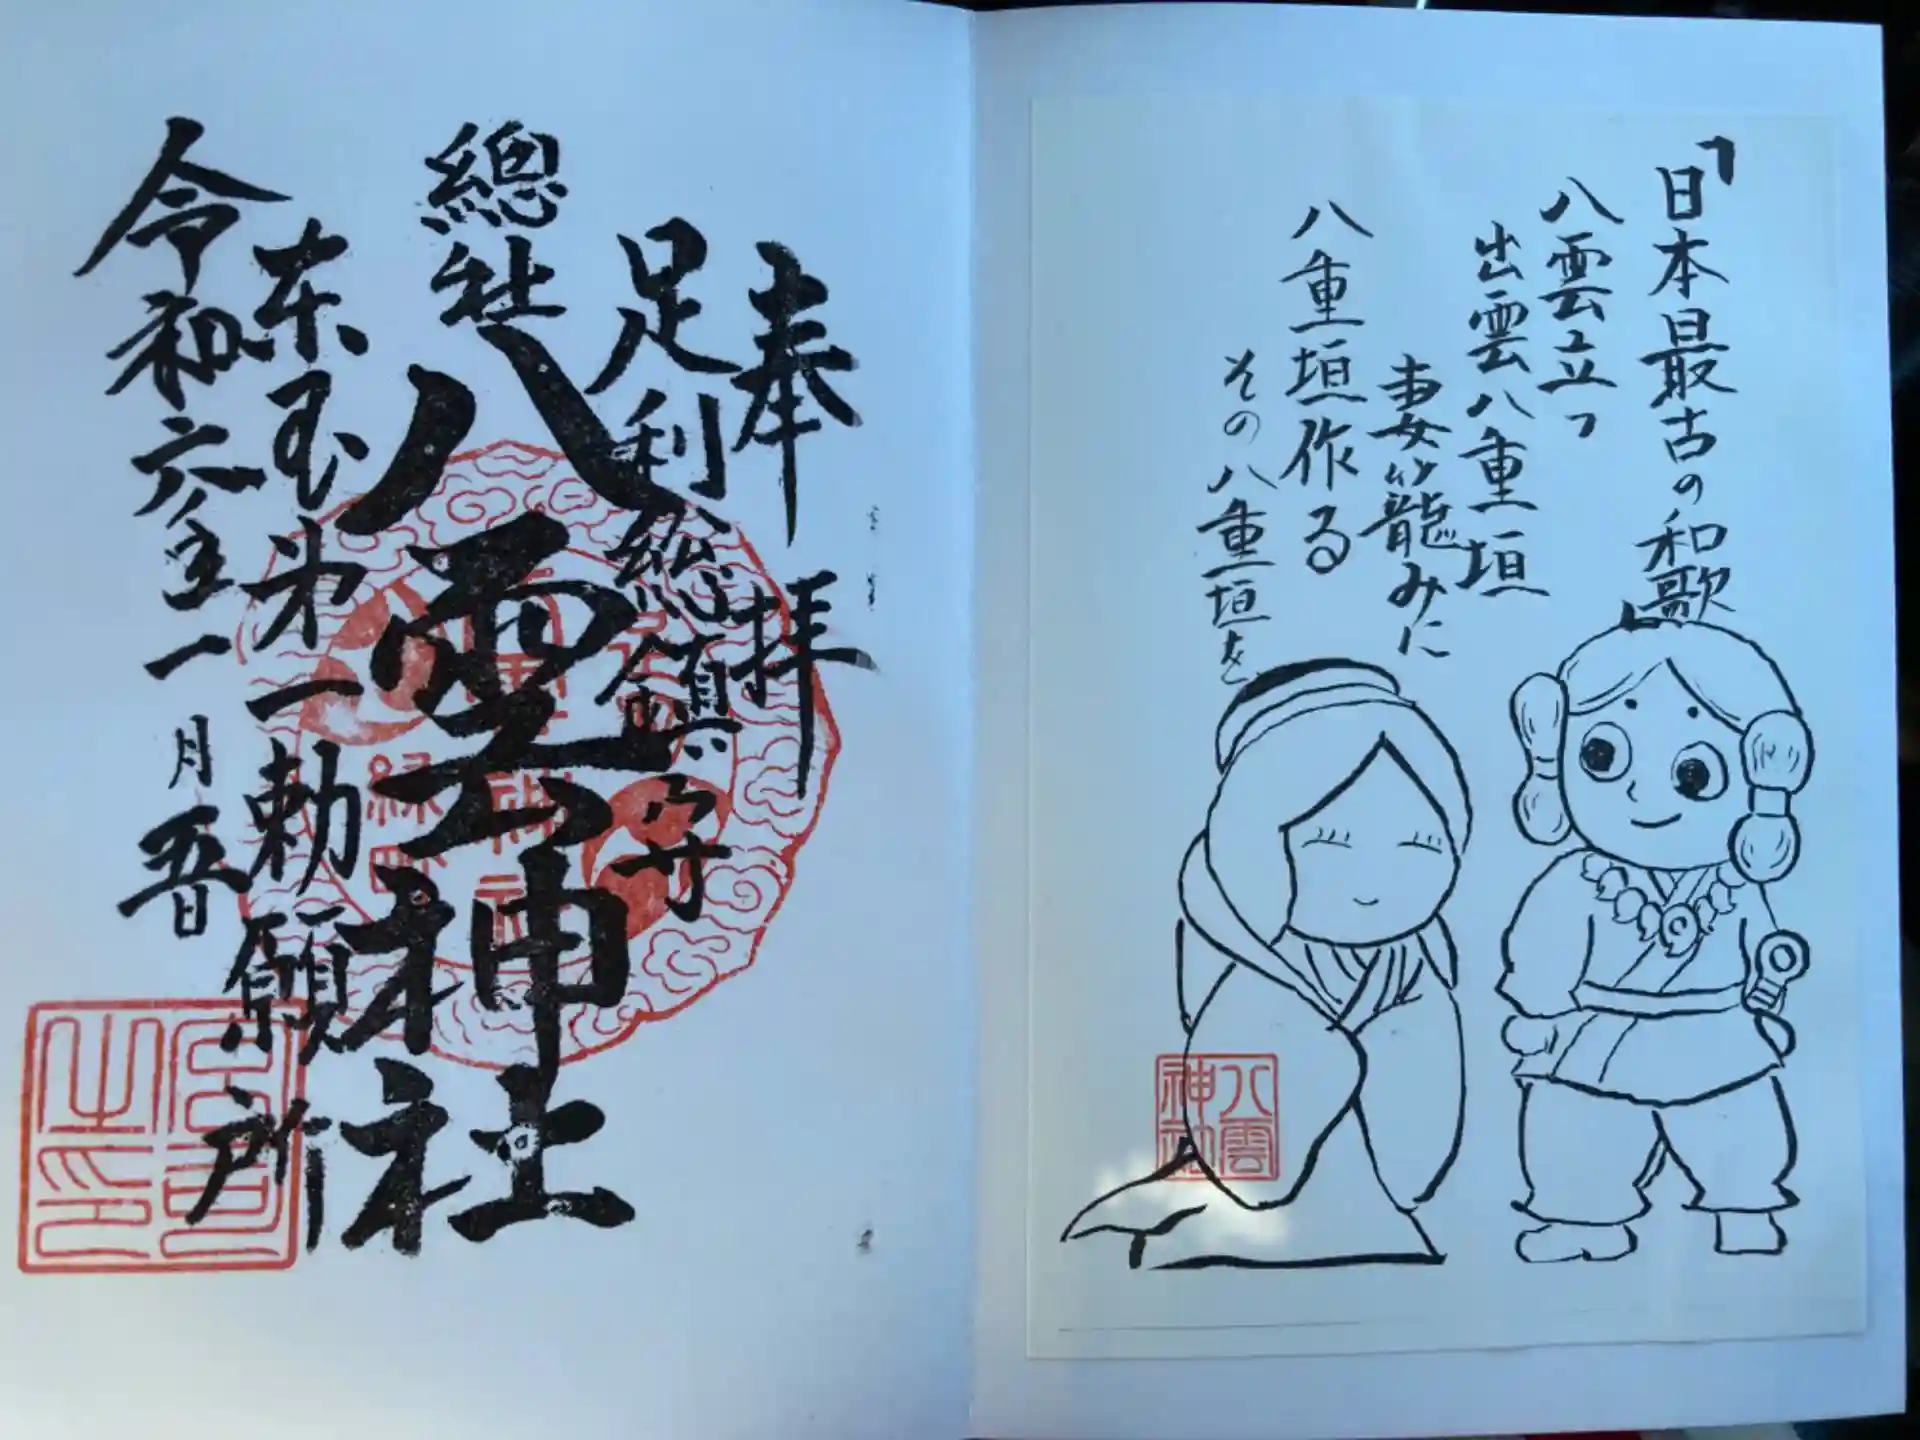 「日本最古の和歌
八雲立つ
出雲八重垣
妻籠みに
八重垣作る
その八重垣を
八雲
神社
奉拝
足利総鎮守
總社八雲神社
東国第一勅願所
令和六年一月五日
宮司
之印